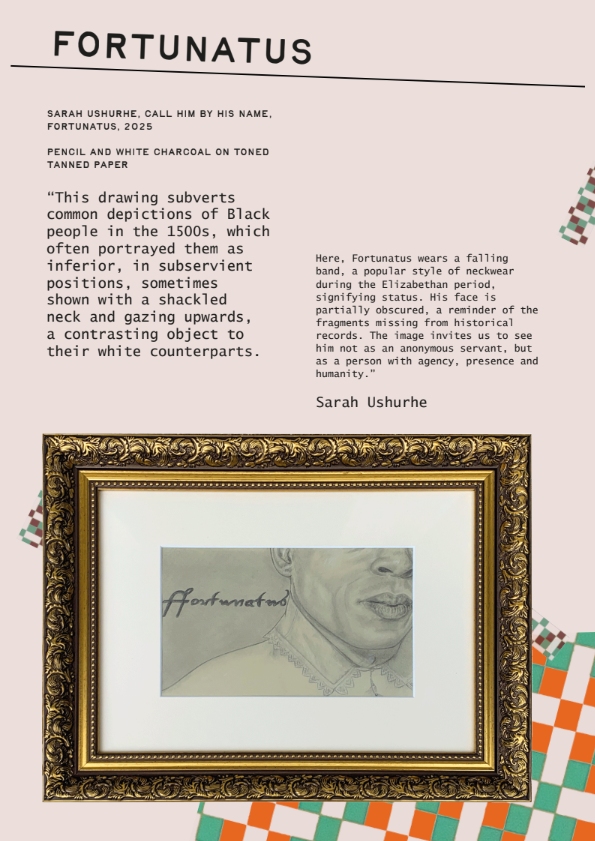 FORTUNATUS
SARAH USHURHE, CALL HIM BY HIS NAME,
FORTUNATUS, 2025
PENCIL AND WHITE CHARCOAL ON TONED
TANNED PAPER
“This drawing subverts
common depictions of Black
people in the 1500s, which
often portrayed them as
inferior, in subservient
positions, sometimes
shown with a shackled
neck and gazing upwards,
a contrasting object to
their white counterparts.
Here, Fortunatus wears a falling
band, a popular style of neckwear
during the Elizabethan period,
signifying status. His face is
partially obscured, a reminder of the
fragments missing from historical
records. The image invites us to see
him not as an anonymous servant, but
as a person with agency, presence and
humanity.”
Sarah Ushurhe
ffortunatus